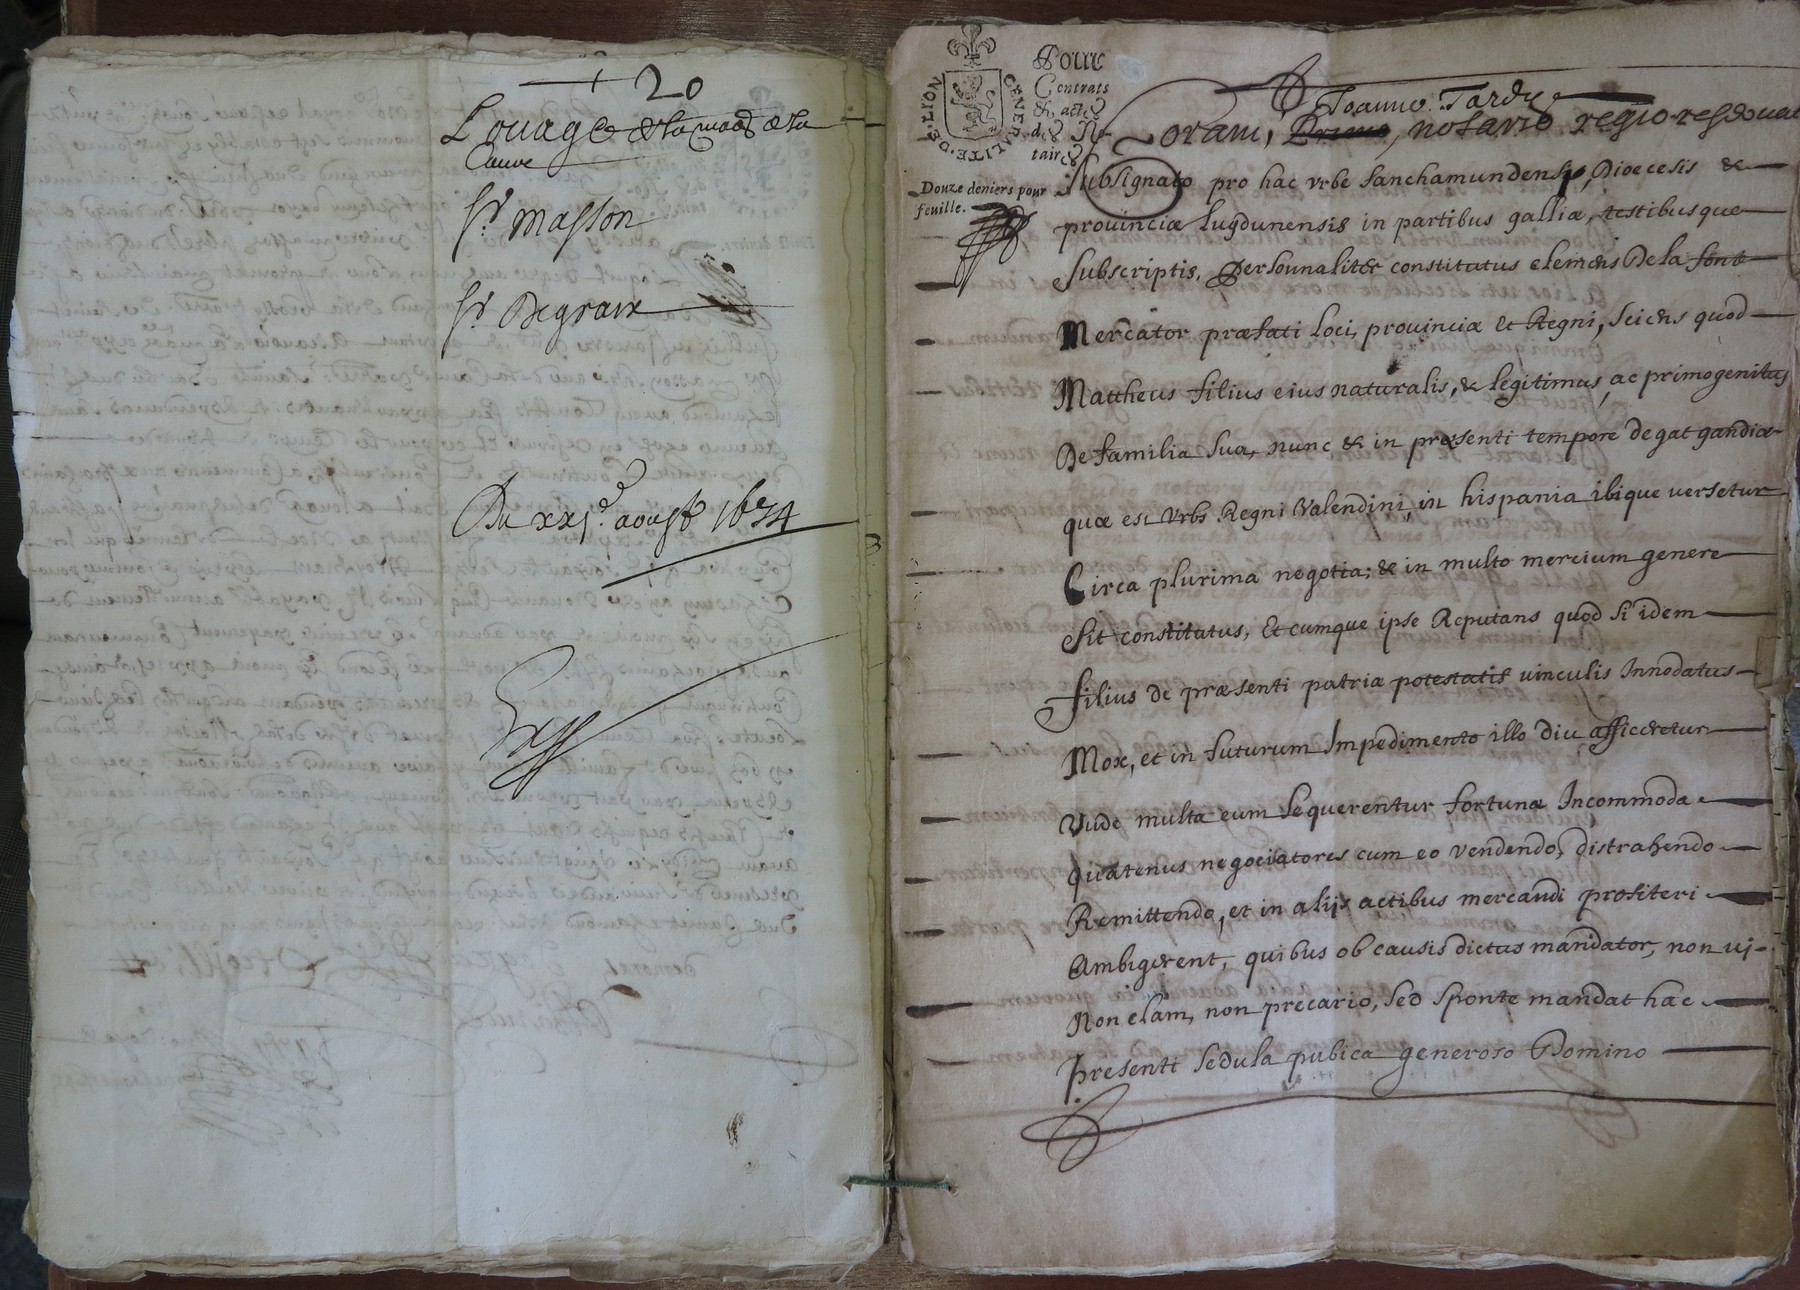 + 20
Louage
Cauve
Sr. Masson
Sr. Degraix
Du xxje. aoust 1674
GENERALITE · DE · LYON
Pour
Contrats
& actes
des No-
taires
Douze deniers pour
feuille.
Joanne Tardy
Coram, Primo, notario regio
Subsignato pro hac Vrbe Sanchamundensi, Dioecesis &
prouinciæ Lugdunensis in partibus galliæ, testibusque
Subscriptis, Personnaliter constitutus clemens Dela font
Mercator præfati Loci, prouinciæ Et Regni, Sciens quod
Mattheus filius eius naturalis, & legitimus, ac primogenitus
De familia Sua, nunc & in præsenti tempore degat gandiæ
quæ est Vrbs Regni Valendini, in hispania ibique versetur
Circa plurima negotia; & in multo mercium genere
Sit constitutus, Et cumque ipse Reputans quod Si idem
filius de præsenti patriæ potestatis uinculis Innodatus
Mox, et in futurum Impedimento illo diu afficeretur
Vnde multa eum Sequerentur fortunæ Incommoda
Quatenus negociatores cum eo vendendo, distrahendo
Remittendo, et in alijs actibus mercandi profiteri
Ambigerent, quibus ob causis dictus mandator, non ui-
Non clam, non precario, sed Sponte mandat hac
Presenti Sedula pubica generoso Domino